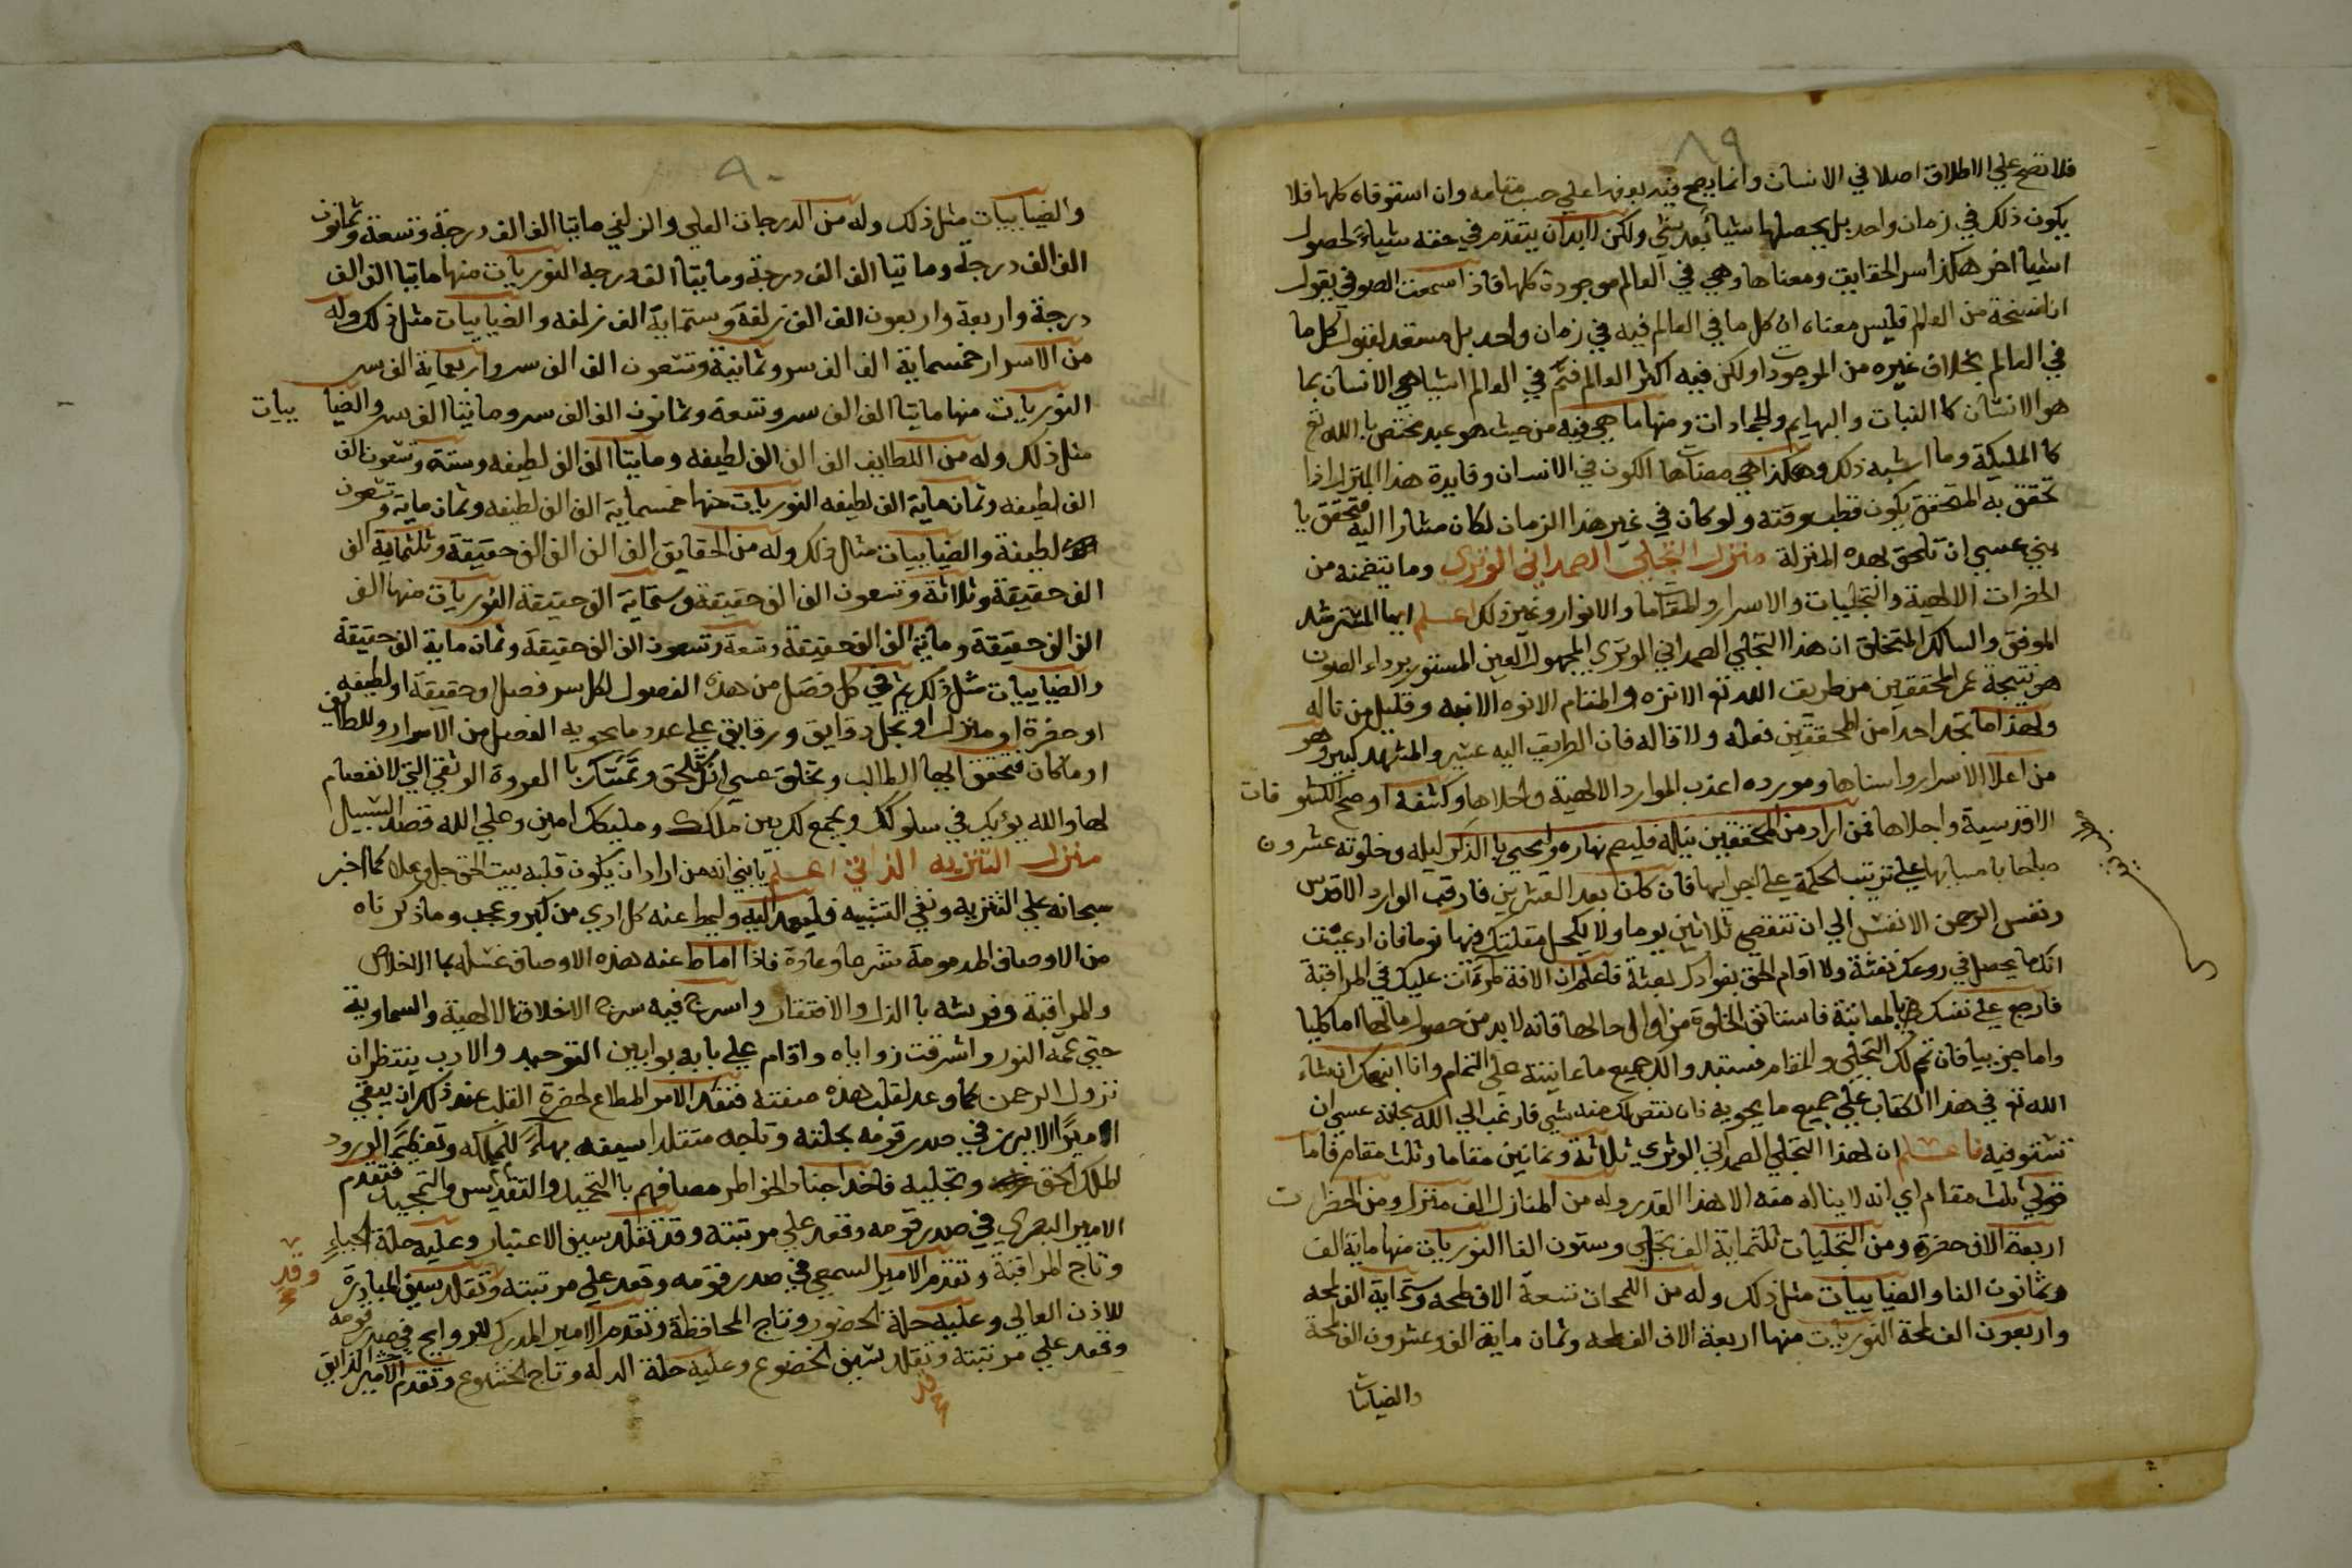 ٨٩
فلا تصح علي الاطلاق اصلا في الانسان وانما يصح فيه بعضها علي حسب مقامه وان استوفاه كلها فلا
يكون ذلك في زمان واحد بل يحصلها شيأ بعد شي ولكن لابد ان يتقدم في حقه شياء لحصول
اشيا اخر هكذا سر الحقايق ومعناها وهي في العالم موجودة كلها فاذا سمعت الصوفي يقول
انا نسخة من العالم فليس معناه ان كل ما في العالم فيه في زمان واحد بل مستعد لقبول كل ما
في العالم بخلاف غيره من الموجودات ولكن ففيه اكثر العالم فثم في العالم اشيا هي الانسان بما
هو الانسان كا النبات والبهايم والجمادات ومنها ما هي فيه من حيث هو عبد مختص با الله تع
كا المليكة وما اشبه ذلك وهكذا هي مضاهات الكون في الانسان وفايدة هذا المنزل اذا
تحقق به المتحقق يكون قطب وقته ولو كان في غير هذا الزمان لكان مشارا اليه فتحقق يا
بني عسي ان تلحق بهذه المنزلة منزل التجلي الصمداني الوتري وما يتضمنه من
الحضرات الالهية والتجليات والاسرار والمقامات والانوار وغير ذلك اعلم ايها المسترشد
الموفق والسالك المتخلق ان هذا التجلي الصمداني الوتري المجهول العين المستور برداء الصون
هو نتيجة عمر المحققين من طريق الله تع الانزه والمقام الانوه الانبه وقليل من ناله
ولهذا ما تجد احدا من المحققين فعله ولا قاله فان الطريق اليه عسير والمشهد كبير وهو
من اعلا الاسرار واسناها ومورده اعذب الموارد الالهية واحلاها وكشفه اوضح الكشوفات
الاقدسية واجلاها فمن اراد من المحققين نيله فليصم نهاره وليحيي با الذكر ليله وخلوته عشرون
صباحا با مسايها علي ترتيب الحكمة علي اجرايها فان كان بعد العشرين فارقب الوارد الاقدس
ونفس الرحمن الانفس الي ان تنقضي ثلاثين يوما ولا يكحل مقلتيك فيها نوما فان ادعيت
انك ما يحصل في روعك نفثة ولا اقام الحق بفوادك بعثة فاعلم ان الافة طرأت عليك في المراقبة
فارجع علي نفسك بالمعاتبة فاستانف الخلوة من اول حالها فانه لابد من حصول مالها اما كليا
واما جزييا فان تم لك التجلي والمقام فستبدوا لك جميع ما عاينته علي التمام وانا انبهك ان شاء
الله تع في هذا الكتاب علي جميع ما يحويه فان نقص لك منه شي فارغب الي الله بجلفه عسي ان
تستوفيه فاعلم ان لهذا التجلي الصمداني الوتري ثلاثة وثمانين مقاما وثلث مقام فاما
قولي ثلث مقام اي انه لا يناله منه الا هذا القدر وله من المنازل الف منزل ومن الحضرات
اربعة الاف حضرة ومن التجليات ثلثماية الف تجلي وستون الفا النوريات منها ماية الف
وثمانون الفا والضيابيات مثل ذلك وله من اللمحات تسعة الاف لمحه وستماية الف لمحه
واربعون الف لمحة النوريات منها اربعة الاف الف لمحه وثمان ماية الف وعشرون الف لمحة
والضيابيات
٩٠
والضيابيات مثل ذلك وله من الدرجات العلي والزلفي مايتا الف الف درجة وتسعة وثمانون
الف الف درجة ومايتا الف الف درجة ومايتا الف درجه النوريات منها مايتا الف الف
درجة واربعة واربعون الف الف زلفة وستماية الف زلفه والضيابيات مثل ذلك وله
من الاسرار خمسماية الف الف سر وثمانية وتسعون الف الف سر واربعماية الف سر
النوريات منها مايتا الف الف سر وتسعة وثمانون الف الف سر ومايتا الف سر والضيا بيات
مثل ذلك وله من اللطايف الف الف الف لطيفه ومايتا الف الف لطيفه وستة وتسعون الف
الف لطيفه وثمان ماية الف لطيفه النوريات منها خمسماية الف الف لطيفه وثمان ماية وتسعون
لطيفة والضيابيات مثال ذلك وله من الحقايق الف الف الف الف حقيقة وثلثماية الف
الف حقيقة وثلاثة وتسعون الف الف حقيقة وستماية الف حقيقة النوريات منها الف
الف الف حقيقة وماية الف الف حقيقة وتسعة وتسعون الف الف حقيقة وثمان ماية الف حقيقة
والضيابيات مثل ذلك ثم في كل فصل من هذه الفصول لكل سر فصل او حقيقة او لطيفه
او حضرة او منزل او تجل دقايق ورقايق علي عدد ما يحويه الفصل من الاسرار واللطايف
او ما كان فتحقق ايها الطالب وتخلق عسي انك تلحق وتمسك با العروة الوثقي التي لا انفصام
لها والله يؤيدك في سلوكك ويجمع لك بين ملكك ومليكك امين وعلي الله قصد السبيل
منزل التنزيه الذاتي اعلم يا بني انه من اراد ان يكون قلبه بيت الحق جل وعلا كما اخبر
سبحانه علي التنزيه ونفي التشبيه فليعمد اليه وليمط عنه كل اذي من كبر وعجب وما ذكرناه
من الاوصاف المذمومة شرعا وعادة فاذا اماط عنه هذه الاوصاف غسله بما الاخلاص
والمراقبة وفرشه با الذل والافتقار واسرج فيه سرج الاخلاق الالهية والسماوية
حتي عمه النور واشرقت زواياه واقام علي بابه بوابين التوحيد والادب ينتظران
نزول الرحمن كما وعد لقلب هذه صفته فنفذ الامر المطاع لحضرة القلب عند ذلك ان يبقي
الامير الاببرز في صدر قومه بحلته وتاجه متقلدا سيفه بهاء للمملكه وتعظيما لورود
الملك الحق وتجليه فاخذ اجناد الخواطر مصافهم با التحميد والتقديس والتمجيد فتقدم
الامير البصري في صدر قومه وقعد علي مرتبته وقد تقلد سيف الاعتبار وعليه حلة الحياء
وقد
وتاج المراقبة وتقدم الامير السمعي في صدر قومه وقعد علي مرتبته وتقلد سيف المبادرة
للاذن العالي وعليه حلة الحضور وتاج المحافظة وتقدم الامير المدرك للروايح في صدر قومه
وقعد علي مرتبته وتقلد سيف الخضوع وعليه حلة الدلة وتاج الخشوع وتقدم الامير الذايق
وقد